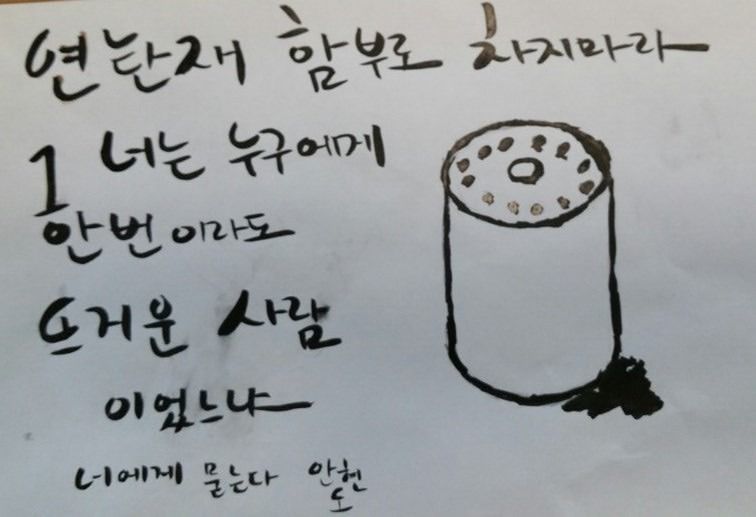 연탄재 함부로 차지마라
1 너는 누구에게
한번이라도
뜨거운 사람
이었느냐
너에게 묻는다 안현도